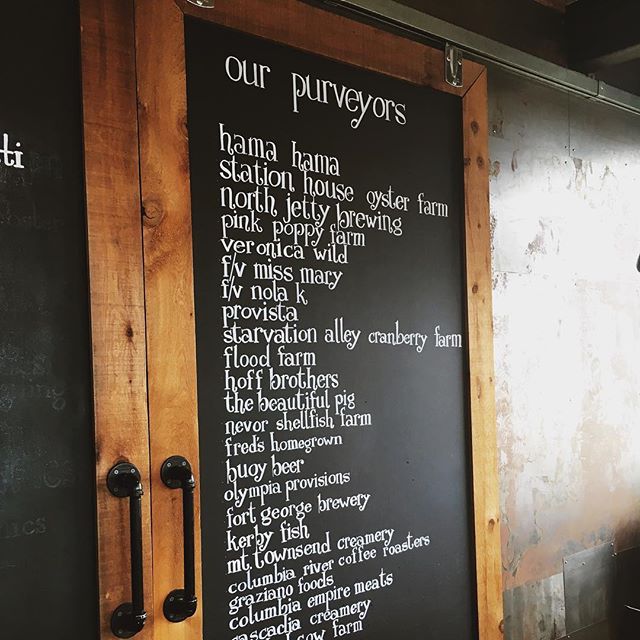 our purveyors
hama hama
station house oyster farm
north jetty brewing
pink poppy farm
veronica wild
f/v miss mary
f/v nola k
provista
starvation alley cranberry farm
flood farm
hoff brothers
the beautiful pig
nevor shellfish farm
fred's homegrown
buoy beer
olympia provisions
fort george brewery
kerby fish
mt. townsend creamery
columbia river coffee roasters
graziano foods
columbia empire meats
cascadia creamery
cow farm
ti